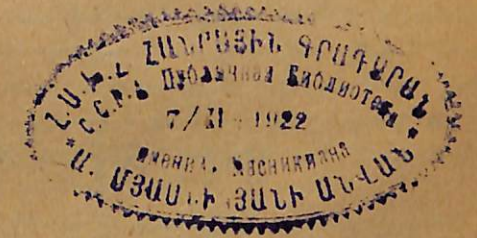 Հ.Ս.Խ.Հ ՀԱՆՐԱՅԻՆ ԳՐԱԴԱՐԱՆ
С.С.Р.А Публичная Библиотека
7/XI 1922
имени. Мясникяна
Ա. ՄՅԱՍՆԻԿՅԱՆԻ ԱՆՎԱՆ